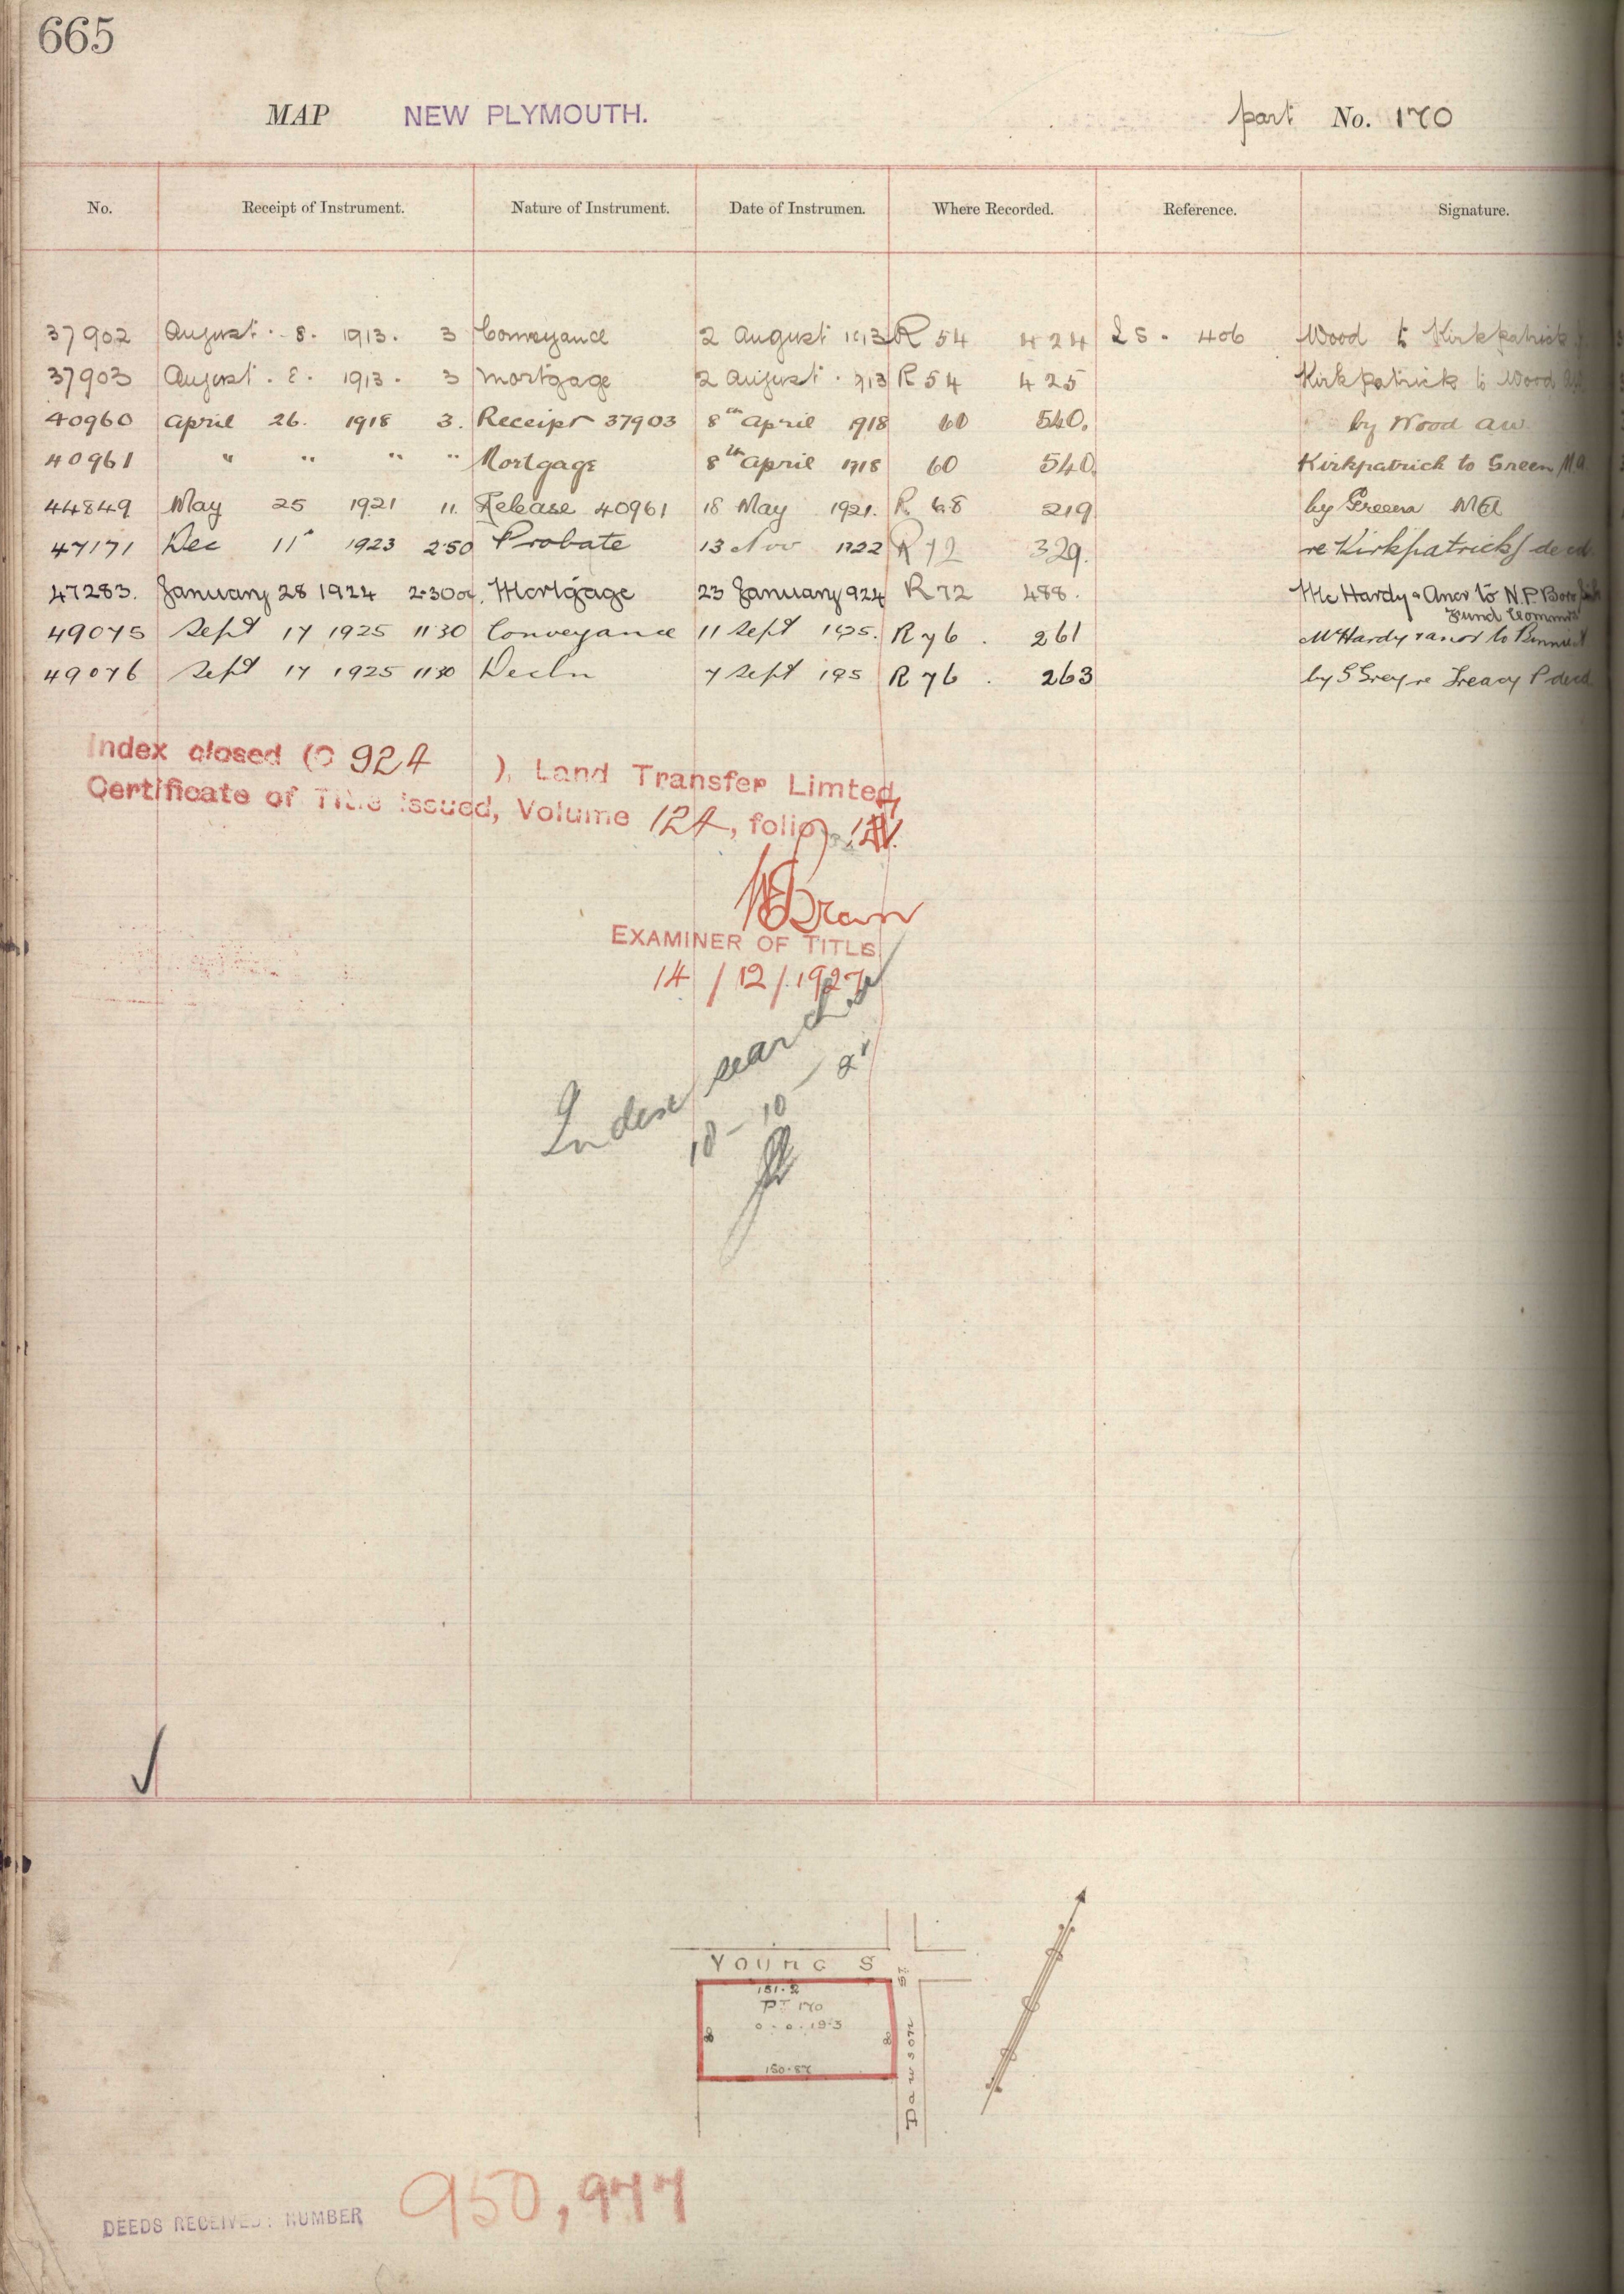 665
MAP NEW PLYMOUTH. part No. 170
No. Receipt of Instrument. Nature of Instrument. Date of Instrumen. Where Recorded. Reference. Signature.
37902 August 8. 1913. 3 Conveyance 2 August 1913 R 54 424 406 Wood to Kirkpatrick
37903 August. 8. 1913. 3 Mortgage 2 August 1913 R 54 425 Kirkpatrick to Wood
40960 April 26. 1918 3. Receipt 37903 8th April 1918 60 540. by Wood AW
40961 " " " " Mortgage 8th April 1918 60 540. Kirkpatrick to Green MA
44849 May 25 1921 11. Release 40961 18 May 1921. R 68 219 by Green MA
47171 Dec 11 1923 2.50 Probate 13 Nov 1922 R 72 329. re Kirkpatrick decd
47283. January 28 1924 2.30 Mortgage 23 January 924 R 72 488. McHardy & Anor to N.P. Boro
Fund Commrs
49075 Sept 17 1925 11 30 Conveyance 11 Sept 1925. R 76. 261 McHardy & anor to
49076 Sept 17 1925 11 30 Decln 7 Sept 195 R 76. 263 by S Grey re Treacy P decd
Index closed (O 924 ), Land Transfer Limted,
Certificate of Title issued, Volume 124, folio
EXAMINER OF TITLE
14/12/1927
Index searched
10-10-
YOUNG S ST
151.2
PT 170
0.0.19.3
150.87
Dawson
DEEDS RECEIVED: NUMBER 950,977